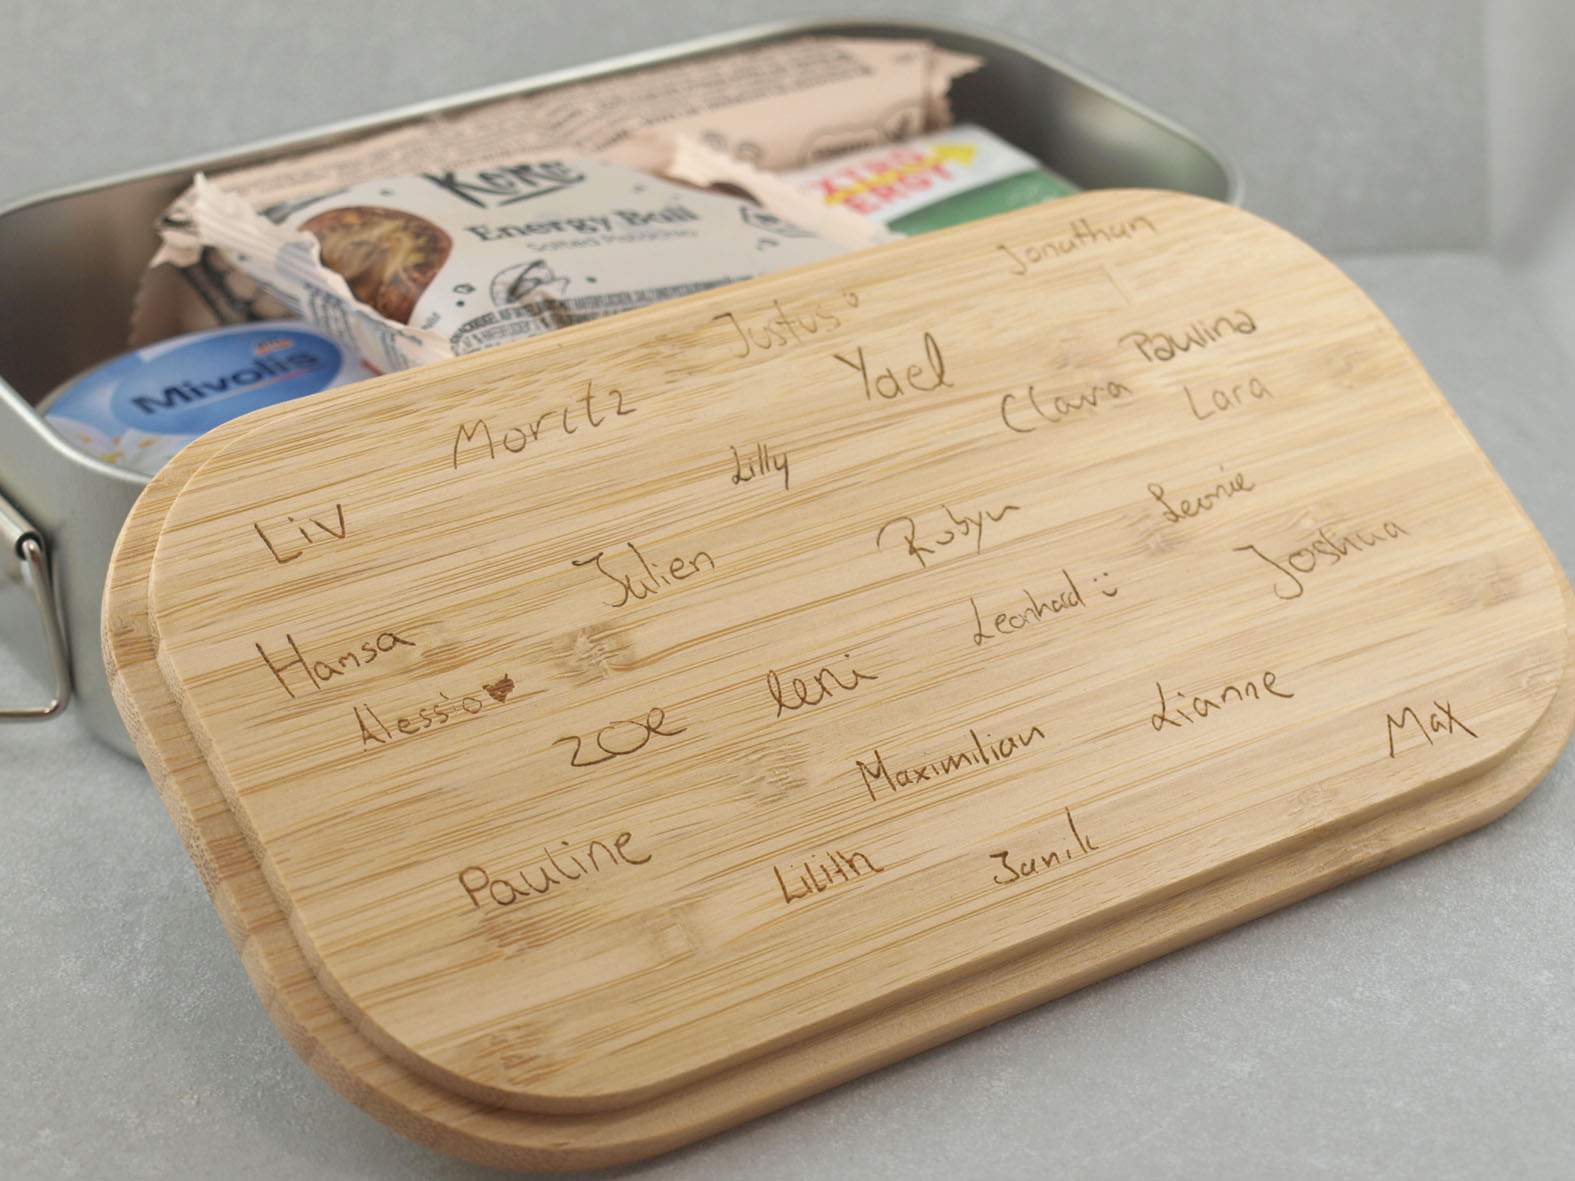 KoRo
Energy Ball
Salted Pistachio
XTRO
ERGY
Mivolis
Jonathan
Justus
Paulina
Yael
Clara
Lara
Moritz
Lilly
Liv
Julien
Robyn
Leonie
Joshua
Leonhard :)
Hansa
Alessio ♥
zoe
leni
Lianne
Maximilian
Max
Pauline
Lilith
Janik